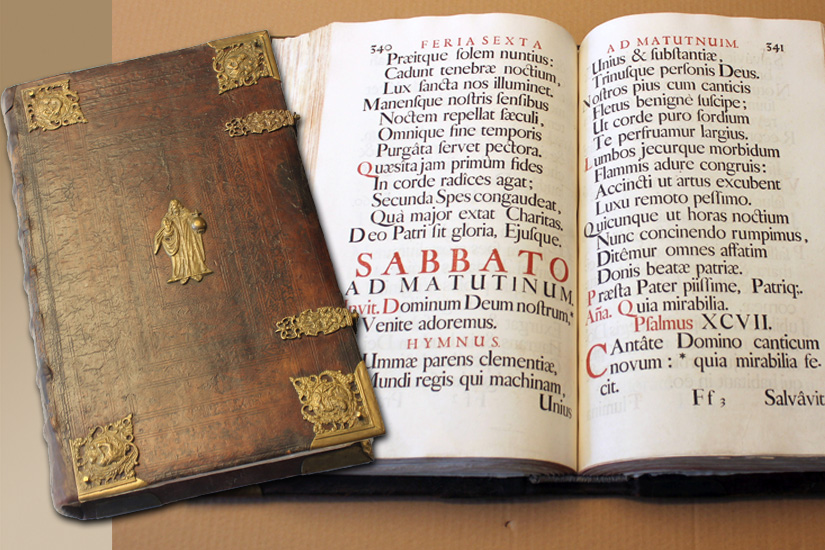 340 FERIA SEXTA
Præitque ſolem nuntius:
Cadunt tenebræ noctium,
Lux ſancta nos illuminet.
Manenſque noſtris ſenſibus
Noctem repellat ſæculi,
Omnique fine temporis
Purgâta ſervet pectora.
Quæsita jam primum fides
In corde radîces agat;
Secunda Spes congaudeat,
Quâ major extat Charitas.
Deo Patri ſit gloria, Ejuſque.
SABBATO
AD MATUTINUM.
Invit. Dominum Deum noſtrum,*
Venite adoremus.
HYMNUS.
Ummæ parens clementiæ,
Mundi regis qui machinam,
Unius
AD MATUTNUIM. 341
Unius & ſubſtantiæ,
Trinuſque perſonis Deus.
Noſtros pius cum canticis
Fletus benignè ſuſcipe;
Ut corde puro ſordium
Te perfruamur largius.
Lumbos jecurque morbidum
Flammis adure congruis:
Accincti ut artus excubent
Luxu remoto peſſimo.
Quicunque ut horas noctium
Nunc concinendo rumpimus,
Ditêmur omnes affatim
Donis beatæ patriæ.
Præſta Pater piiſſime, Patriq:.
Aña. Quia mirabilia.
Pſalmus XCVII.
CAntâte Domino canticum
novum: * quia mirabilia fe-
cit.
Ff 3 Salvâvit